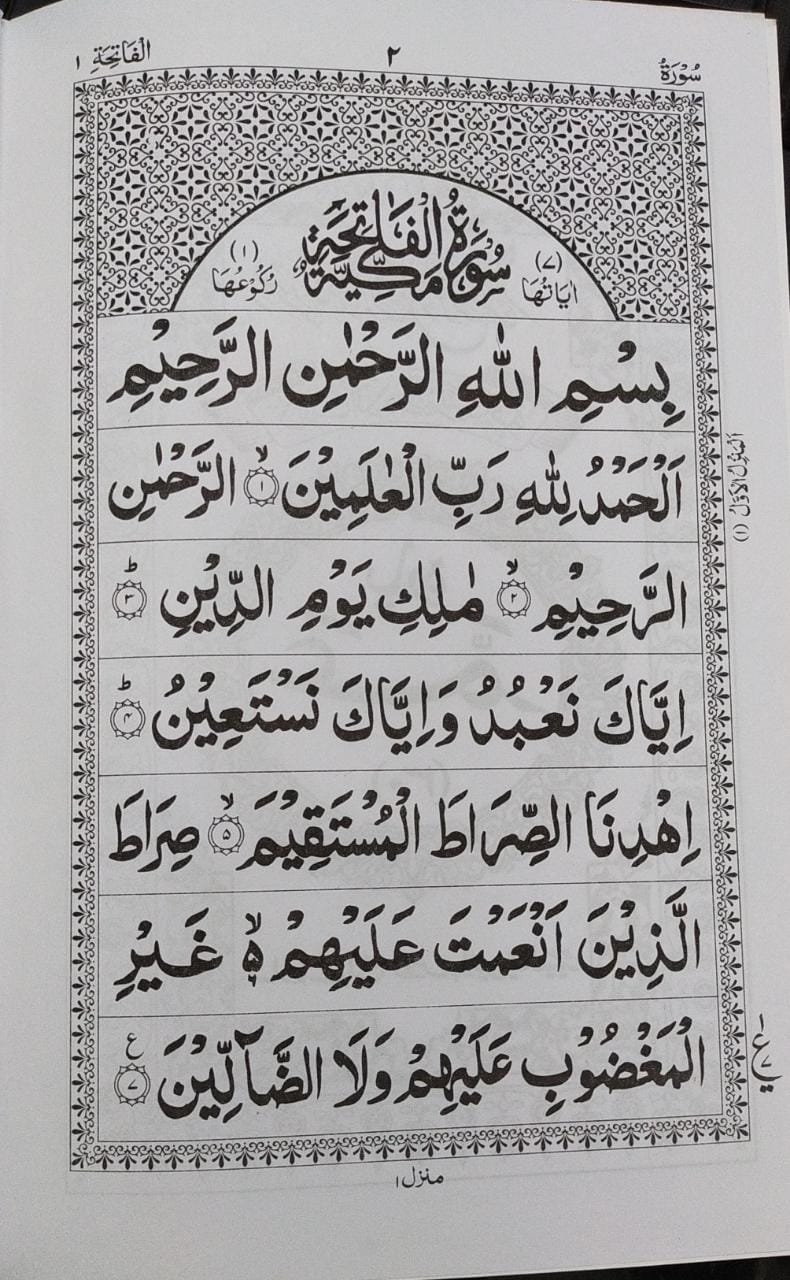 سُوْرَةُ ٢ الْفَاتِحَةِ ١
سُوْرَةُ الْفَاتِحَةِ مَكِّيَّةٌ
(٧) اٰيَاتُهَا
(١) رُكُوْعُهَا
بِسْمِ اللّٰهِ الرَّحْمٰنِ الرَّحِيْمِ
اَلْحَمْدُ لِلّٰهِ رَبِّ الْعٰلَمِيْنَ ۙ١ الرَّحْمٰنِ
الرَّحِيْمِ ۙ٢ مٰلِكِ يَوْمِ الدِّيْنِ ؕ٣
اِيَّاكَ نَعْبُدُ وَاِيَّاكَ نَسْتَعِيْنُ ؕ٤
اِهْدِنَا الصِّرَاطَ الْمُسْتَقِيْمَ ۙ٥ صِرَاطَ
الَّذِيْنَ اَنْعَمْتَ عَلَيْهِمْ ۙ۬ۦ غَيْرِ
الْمَغْضُوْبِ عَلَيْهِمْ وَلَا الضَّآلِّيْنَ ٧ ع
اَلْمَنْزِلُ الْاَوَّلُ (١)
١ ع ٧
منزل ١